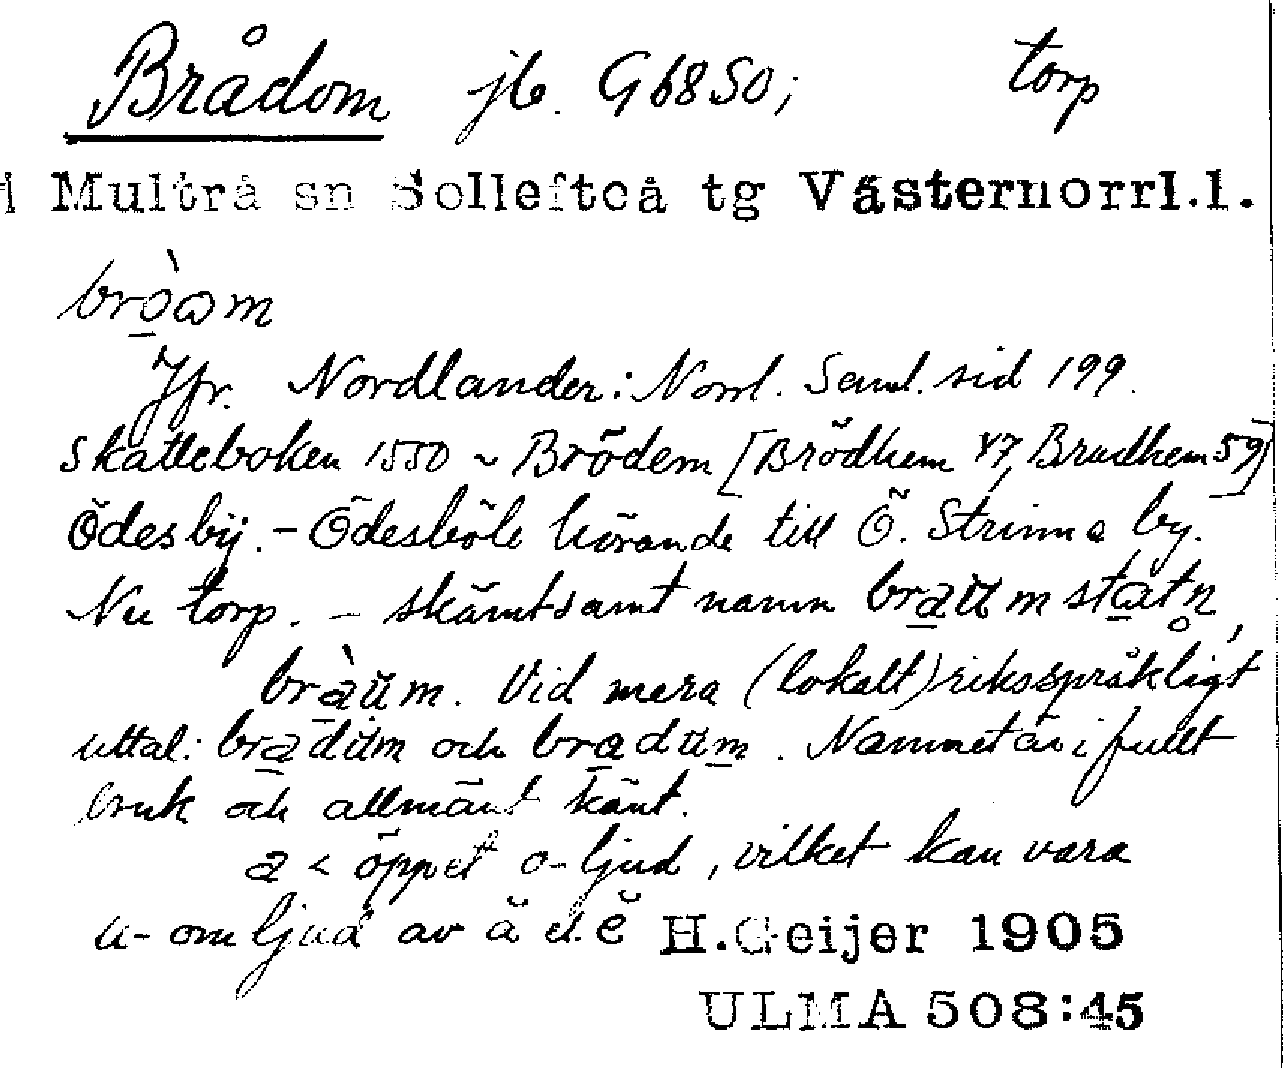 Brådom jb. G6850; torp
i Multrå sn Sollefteå tg Västernorrl.l.
brò̲ɷm
Jfr. Nordlander: Norrl. Saml. sid 199.
Skatteboken 1550 ~ Brödem [Brödhem 47, Brudhem 59]
Ödesbÿ. - Ödesböle hörande till Ö. Strinne by.
Nu torp. - skämtsamt namn bra̲üm sta̲tn̥,
brà̲üm. Vid mera (lokalt) riksspråkligt
uttal: bra̲düm och bra̲düm̲. Namnet är i fullt
bruk och allmänt känt.
a < öppet o-ljud, vilket kan vara
u-omljud av ă el. ĕ H.Geijer 1905
ULMA 508:45